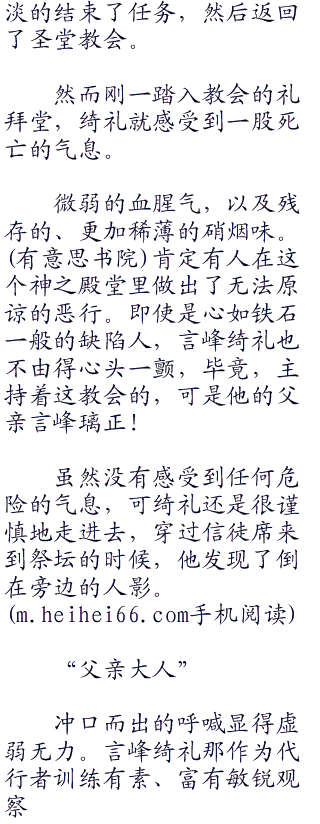 淡的结束了任务，然后返回
了圣堂教会。
然而刚一踏入教会的礼
拜堂，绮礼就感受到一股死
亡的气息。
微弱的血腥气，以及残
存的、更加稀薄的硝烟味。
(有意思书院)肯定有人在这
个神之殿堂里做出了无法原
谅的恶行。即使是心如铁石
一般的缺陷人，言峰绮礼也
不由得心头一颤，毕竟，主
持着这教会的，可是他的父
亲言峰璃正！
虽然没有感受到任何危
险的气息，可绮礼还是很谨
慎地走进去，穿过信徒席来
到祭坛的时候，他发现了倒
在旁边的人影。
(m.heihei66.com手机阅读)
“父亲大人”
冲口而出的呼喊显得虚
弱无力。言峰绮礼那作为代
行者训练有素、富有敏锐观
察